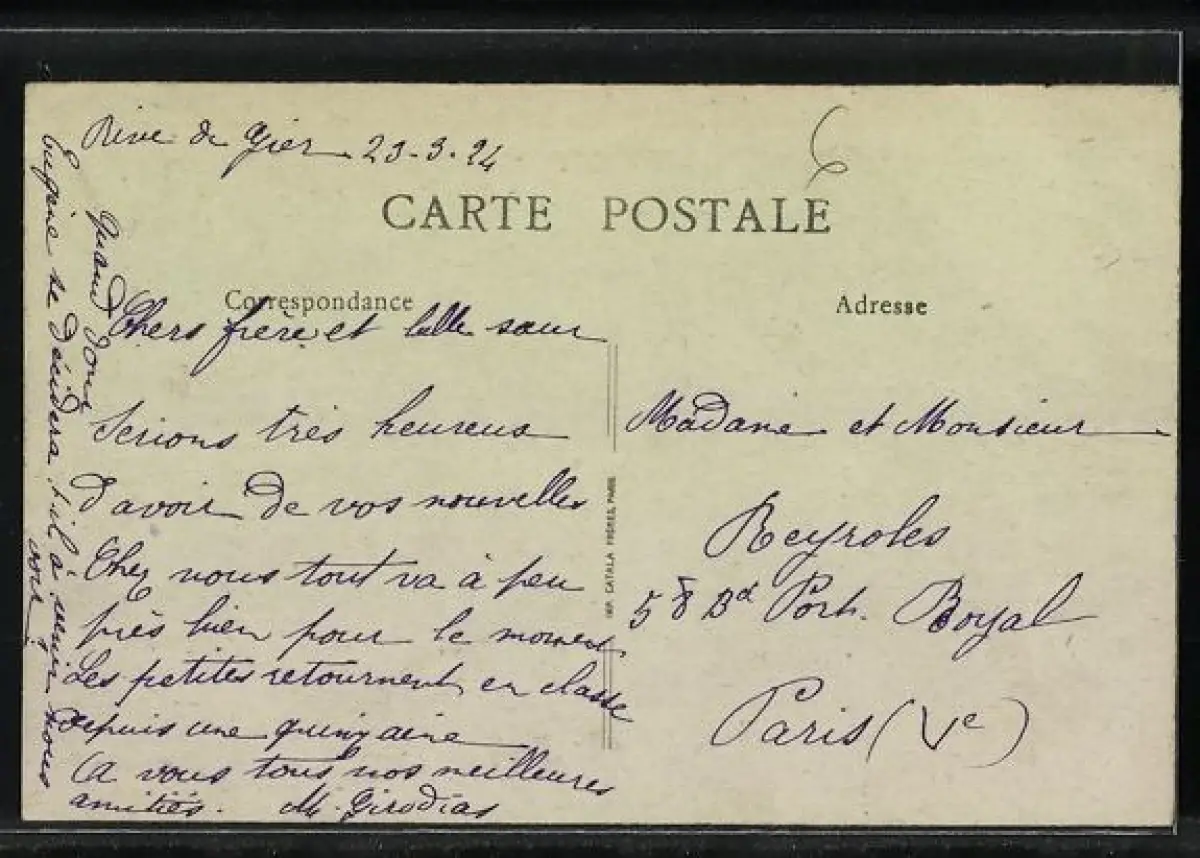 Rive de Gier 23-3-24
6
CARTE POSTALE
Correspondance
Adresse
Chers frère et belle sœur
Serions très heureux
d'avoir de vos nouvelles
Chez nous tout va à peu
près bien pour le moment
Les petites retournent en classe
depuis une quinzaine
A vous tous nos meilleures
amitiés. M. Girodias
Quand donc
Eugène se décidera s'il à venir nous
voir
IMP. CATALA FRÈRES, PARIS
Madame et Monsieur
Reyroles
58 Bd Port. Royal
Paris (Ve)